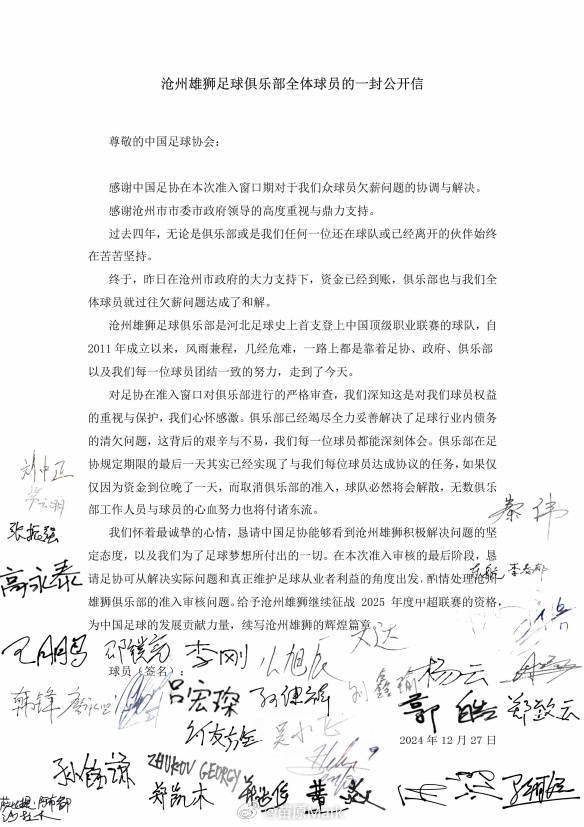 沧州雄狮足球俱乐部全体球员的一封公开信
尊敬的中国足球协会：
感谢中国足协在本次准入窗口期对于我们众球员欠薪问题的协调与解决。
感谢沧州市市委市政府领导的高度重视与鼎力支持。
过去四年，无论是俱乐部或是我们任何一位还在球队或已经离开的伙伴始终
在苦苦坚持。
终于，昨日在沧州市政府的大力支持下，资金已经到账，俱乐部也与我们全
体球员就过往欠薪问题达成了和解。
沧州雄狮足球俱乐部是河北足球史上首支登上中国顶级职业联赛的球队，自
2011年成立以来，风雨兼程，几经危难，一路上都是靠着足协、政府、俱乐部
以及我们每一位球员团结一致的努力，走到了今天。
对足协在准入窗口对俱乐部进行的严格审查，我们深知这是对我们球员权益
的重视与保护，我们心怀感激。俱乐部已经竭尽全力妥善解决了足球行业内债务
的清欠问题，这背后的艰辛与不易，我们每一位球员都能深刻体会。俱乐部在足
协规定期限的最后一天其实已经实现了与我们每位球员达成协议的任务，如果仅
仅因为资金到位晚了一天，而取消俱乐部的准入，球队必然将会解散，无数俱乐
部工作人员与球员的心血努力也将付诸东流。
我们怀着最诚挚的心情，恳请中国足协能够看到沧州雄狮积极解决问题的坚
定态度，以及我们为了足球梦想所付出的一切。在本次准入审核的最后阶段，恳
请足协可从解决实际问题和真正维护足球从业者利益的角度出发，酌情处理沧州
雄狮俱乐部的准入审核问题。给予沧州雄狮继续征战 2025 年度中超联赛的资格，
为中国足球的发展贡献力量，续写沧州雄狮的辉煌篇章。
球员（签名）：
2024 年 12 月 27 日
刘中正
张振强
高永泰
王鹏
李刚
文达
杨云
韩锋
吕宏琛
刘鑫瑜
郭皓
郑致云
吴小飞
ZHUKOV GEORGY
郑凯木